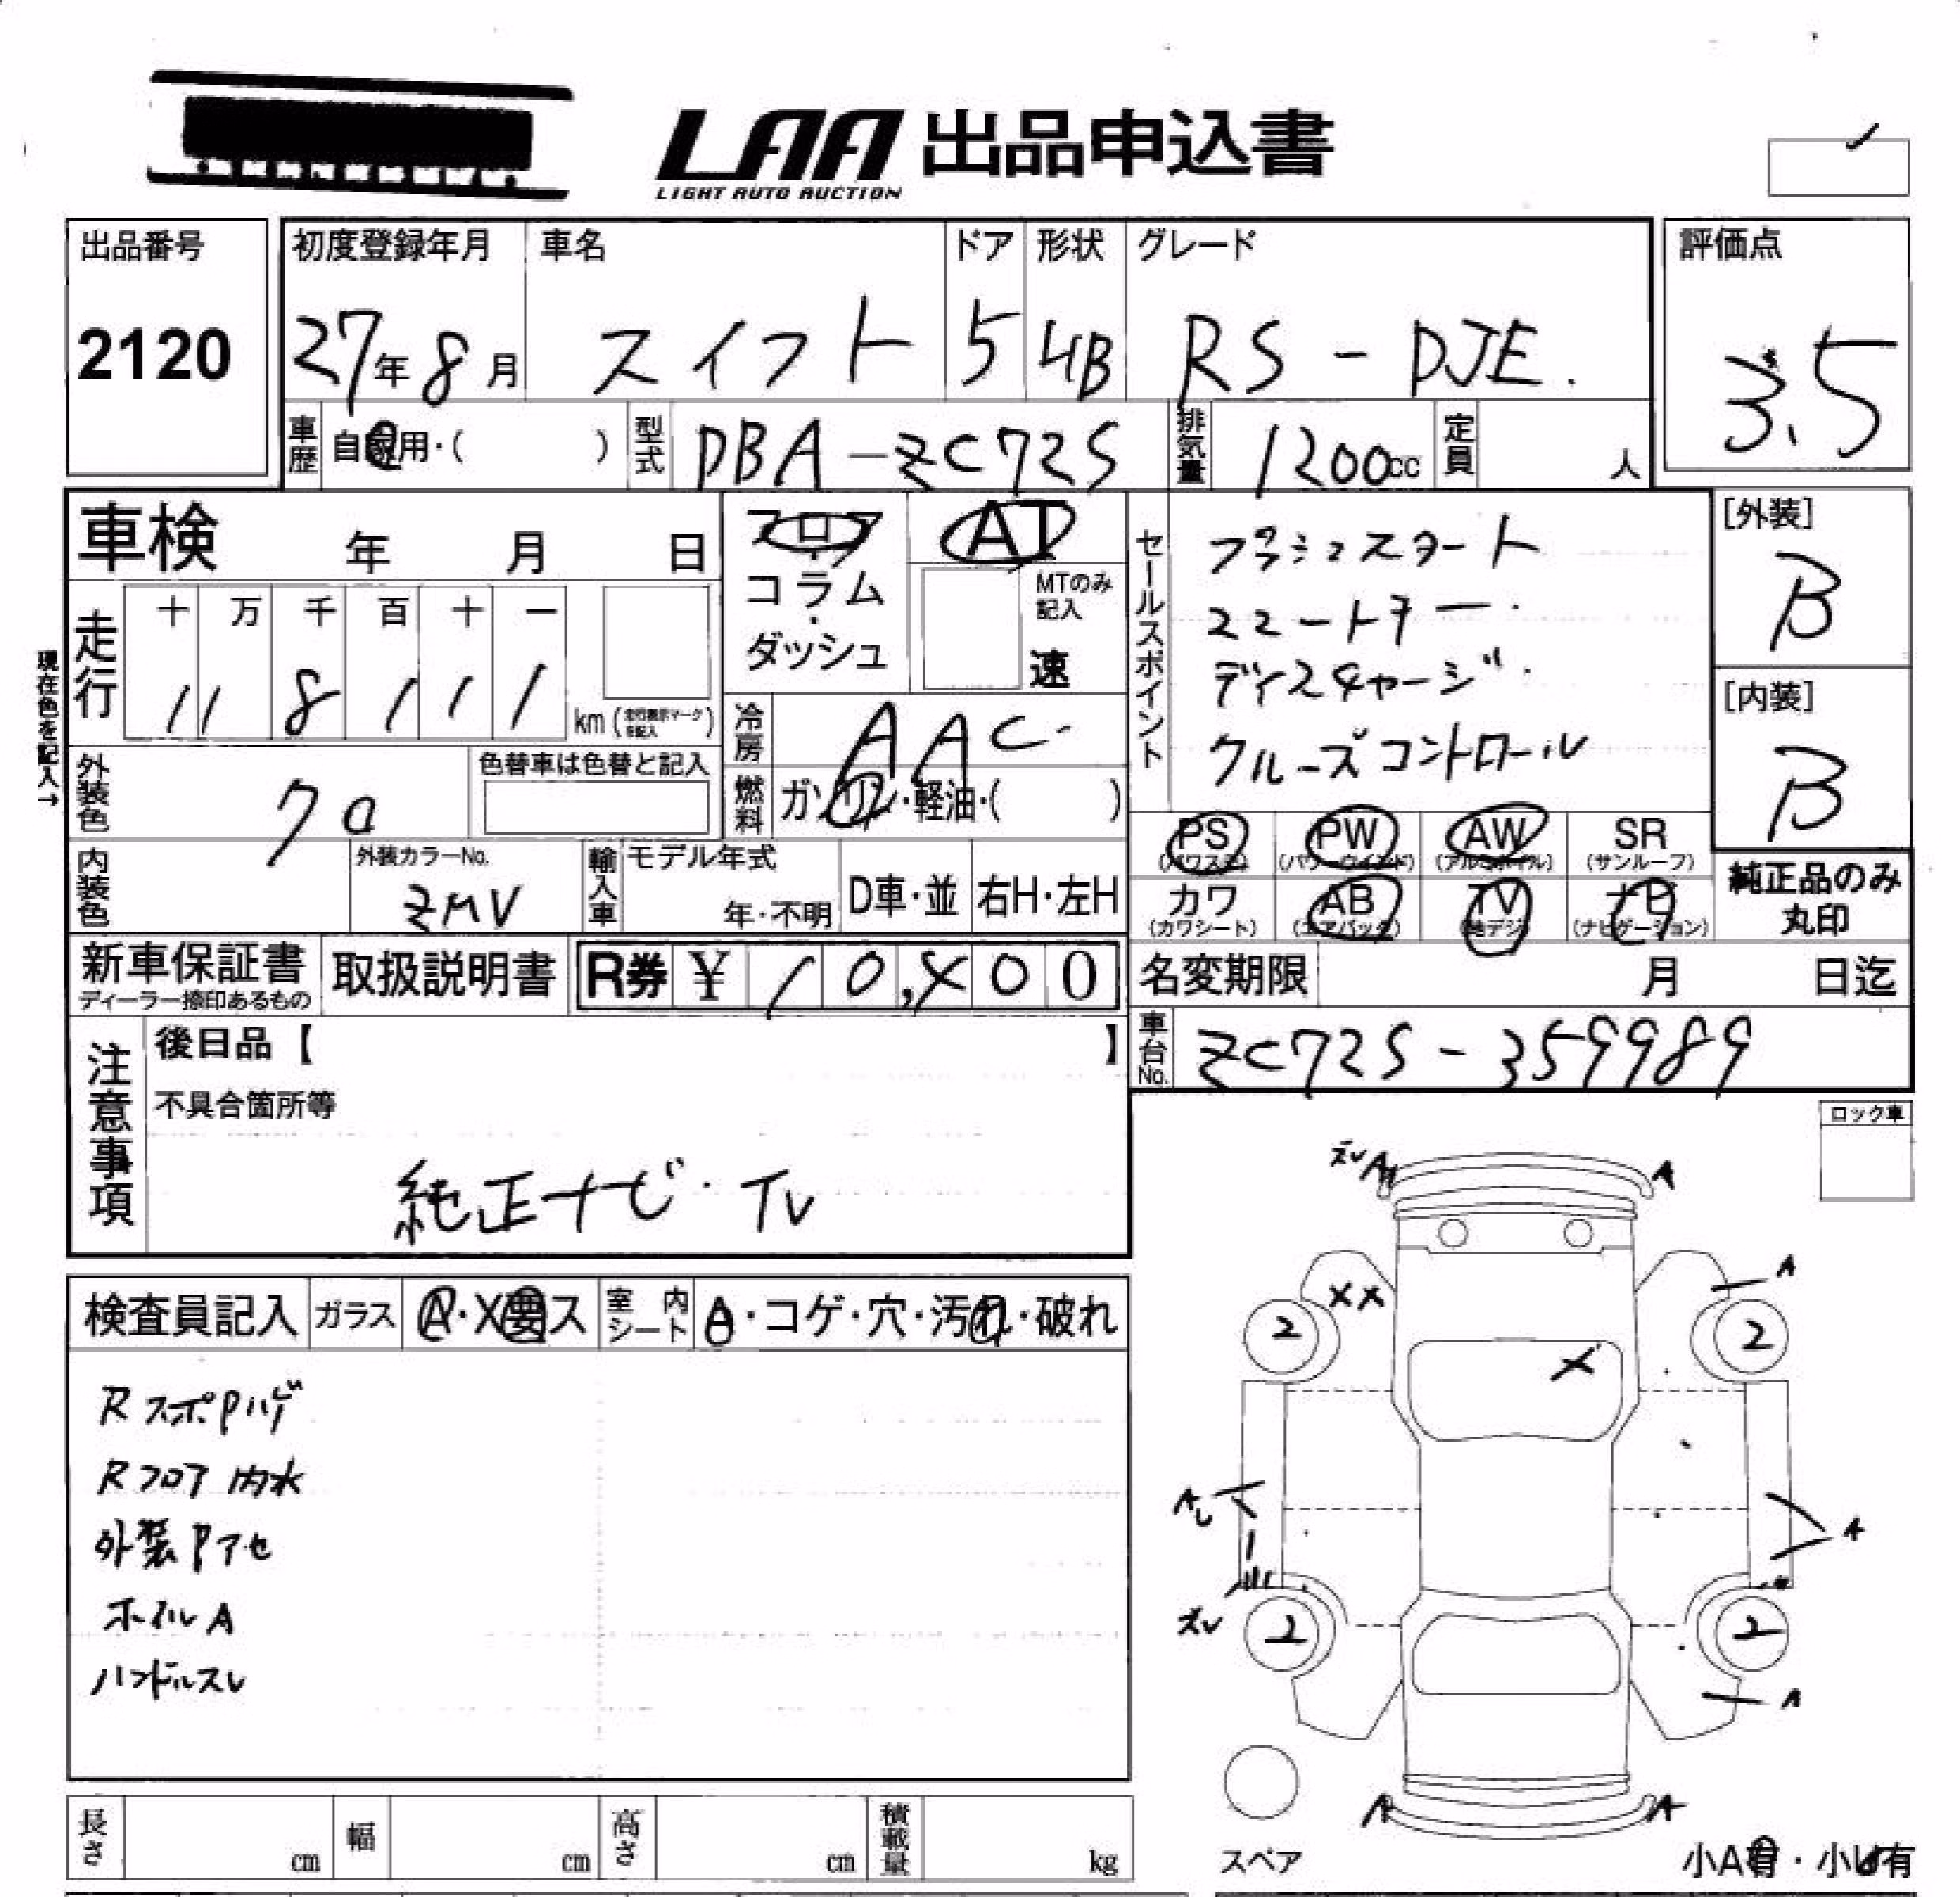 LAA 出品申込書
LIGHT AUTO AUCTION
出品番号
2120
初度登録年月
27年8月
車名
スイフト
ドア
5
形状
HB
グレード
RS-DJE.
評価点
3.5
車歴
自家用・( )
型式
DBA-ZC72S
排気量
1200cc
定員
人
車検 年 月 日
フロア
・
コラム
・
ダッシュ
AT
MTのみ
記入
速
セールスポイント
プッシュスタート
ディスチャージ
クルーズコントロール
[外装]
B
[内装]
B
現在色を記入→
走行
十 万 千 百 十 一
11 8 1 1 1
km (走行表示マークを記入)
冷房
AAC
燃料
ガソリン・軽油・( )
外装色
クロ
色替車は色替と記入
内装色
外装カラーNo.
ZMV
輸入車
モデル年式
年・不明
D車・並
右H・左H
PS (パワステ)
PW (パワーウインド)
AW (アルミホイル)
SR (サンルーフ)
カワ (カワシート)
AB (エアバック)
TV (地デジ)
ナビ (ナビゲーション)
純正品のみ
丸印
新車保証書
ディーラー捺印あるもの
取扱説明書
R券 ¥
名変期限 月 日迄
車台No.
ZC72S-359989
注意事項
後日品【 】
不具合箇所等
純正ナビ・TV
ロック車
検査員記入
ガラス
A・X要ス
室内シート
A・コゲ・穴・汚れ・破れ
Rフロア内水
外装Pアセ
ホイルA
ハンドルスレ
ズレA A
XX A
2 2
X
A
A
2 2
A
A A
スペア
小A有・小U有
長さ cm
幅 cm
高さ cm
積載量 kg